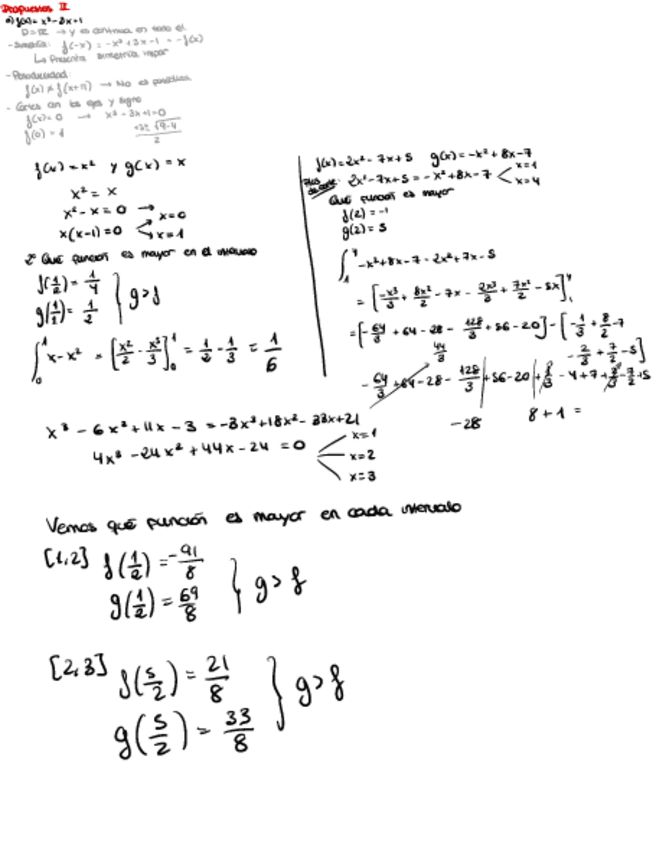 Propuestos II
a) f(x) = x³ - 3x + 1
D = ℝ → y es continua en todo él
- Simetría: f(-x) = -x³ + 3x - 1 = -f(x)
↳ Presenta simetría impar
- Periodicidad:
f(x) ≠ f(x+π) → No es periódica
- Cortes con los ejes y signo
f(x) = 0 → x³ - 3x + 1 = 0
f(0) = 1
+3 ± √9-4 / 2
f(x) = x² y g(x) = x
x² = x
x² - x = 0 → x = 0
x(x-1) = 0 x = 1
2º Qué función es mayor en el intervalo
f(1/2) = 1/4
g(1/2) = 1/2 } g > f
∫₀¹ x - x² = [x²/2 - x³/3]₀¹ = 1/2 - 1/3 = 1/6
f(x) = 2x² - 7x + 5 g(x) = -x² + 8x - 7
Ptos de corte: 2x² - 7x + 5 = -x² + 8x - 7 x = 1 x = 4
Qué función es mayor
f(2) = -1
g(2) = 5
∫₁⁴ -x² + 8x - 7 - 2x² + 7x - 5
= [-x³/3 + 8x²/2 - 7x - 2x³/3 + 7x²/2 - 5x]₁⁴
= [-64/3 + 64 - 28 - 128/3 + 56 - 20] - [-1/3 + 8/2 - 7
- 2/3 + 7/2 - 5]
44/3
- 64/3 + 64 - 28 - 128/3 + 56 - 20 + 1/3 - 4 + 7 + 2/3 - 7/2 + 5
-28 8 + 1 =
x³ - 6x² + 11x - 3 = -3x³ + 18x² - 33x + 21
4x³ - 24x² + 44x - 24 = 0
x = 1
x = 2
x = 3
Vemos qué función es mayor en cada intervalo
[1,2] f(1/2) = -91/8
g(1/2) = 69/8 } g > f
[2,3] f(5/2) = 21/8
g(5/2) = 33/8 } g > f